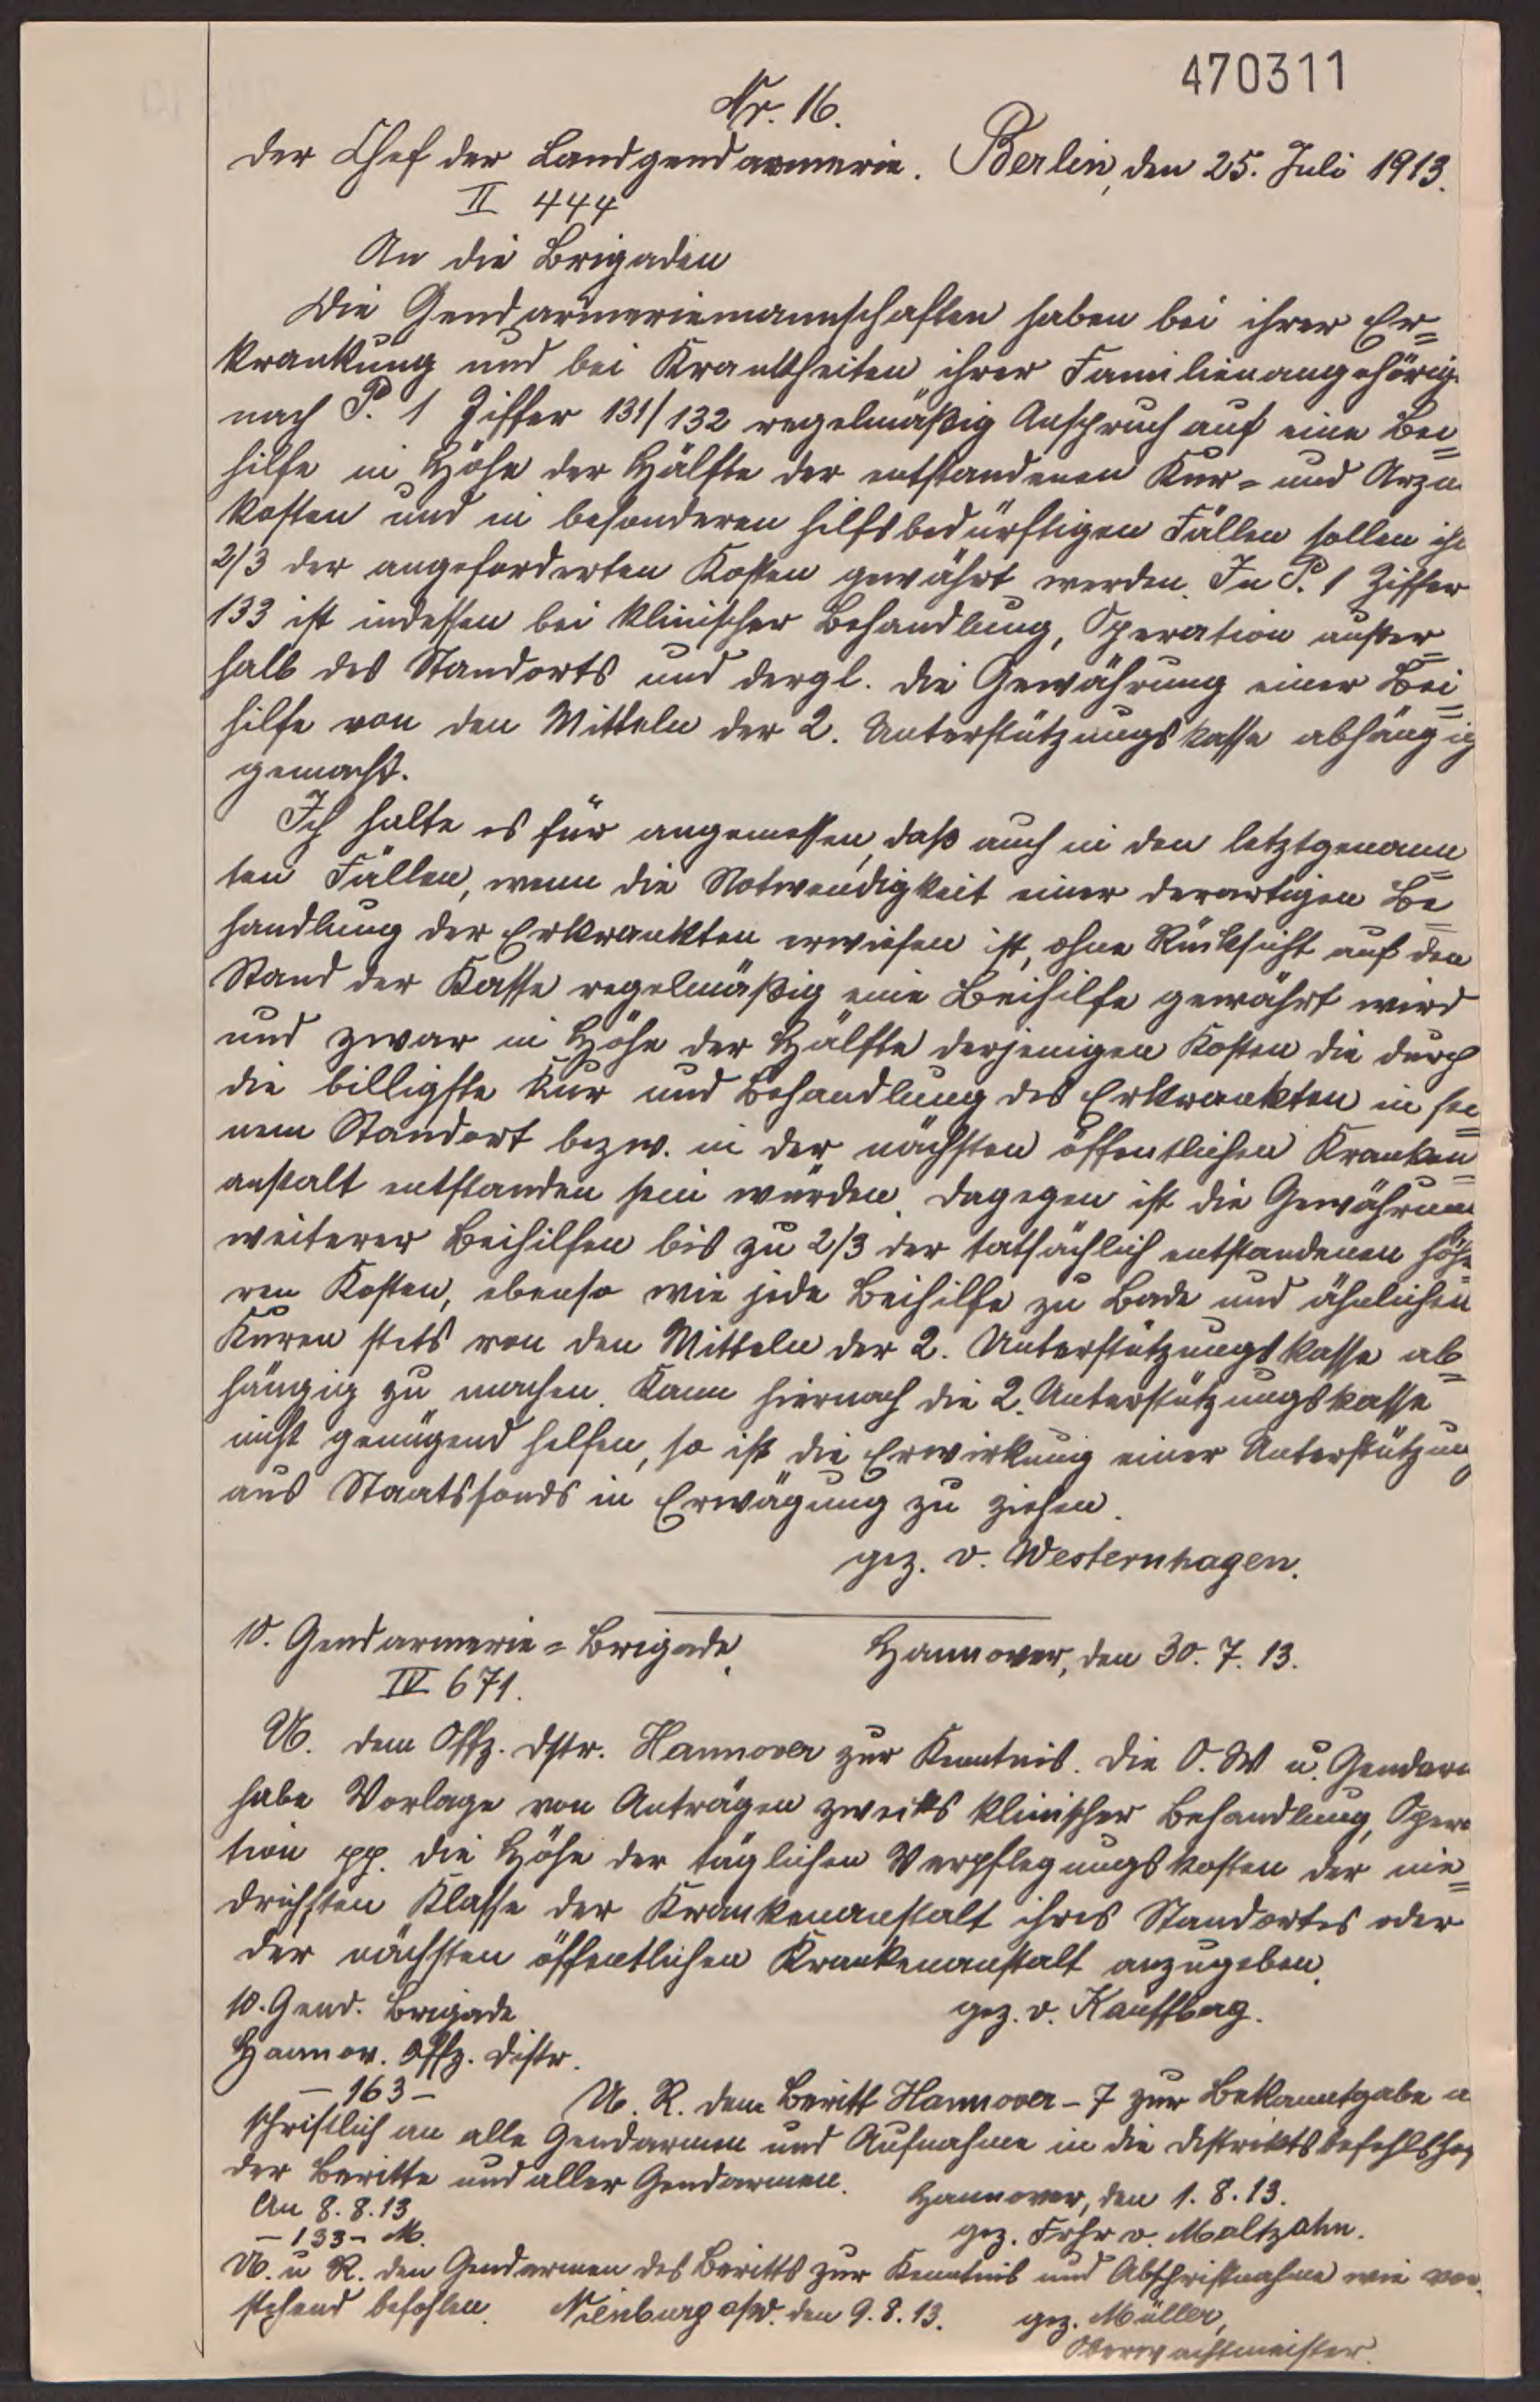 470311
Nr. 16.
Der Chef der Landgendarmerie. Berlin, den 25. Juli 1913.
II 444
An die Brigaden
Die Gendarmeriemannschaften haben bei ihrer Er=
krankung und bei Krankheiten ihrer Familienangehörig
nach P. 1 Ziffer 131/132 regelmäßig Anspruch auf eine Bei=
hilfe in Höhe der Hälfte der entstandenen Kur= und Arzn
kosten und in besonderen hilfsbedürftigen Fällen sollen ih
2/3 der angeforderten Kosten gewährt werden. In P. 1 Ziffer
133 ist indessen bei klinischer Behandlung, Operation außer=
halb des Standorts und dergl. die Gewährung einer Bei=
hilfe von den Mitteln der 2. Unterstützungskasse abhängig
gemacht.
Ich halte es für angemessen, daß auch in den letztgenann=
ten Fällen, wenn die Notwendigkeit einer derartigen Be=
handlung der Erkrankten erwiesen ist, ohne Rücksicht auf den
Stand der Kasse regelmäßig eine Beihilfe gewährt wird
und zwar in Höhe der Hälfte derjenigen Kosten die durch
die billigste Kur und Behandlung des Erkrankten in sei=
nem Standort bezw. in der nächsten öffentlichen Kranken=
anstalt entstanden sein würden. Dagegen ist die Gewährung
weiterer Beihilfen bis zu 2/3 der tatsächlich entstandenen höhe=
ren Kosten, ebenso wie jede Beihilfe zu Bade und ähnlichen
Kuren stets von den Mitteln der 2. Unterstützungskasse ab=
hängig zu machen. Kann hiernach die 2. Unterstützungskasse
nicht genügend helfen, so ist die Erwirkung einer Unterstützung
aus Staatsfonds in Erwägung zu ziehen.
gez. v. Westernhagen.
10. Gendarmerie=Brigade. Hannover, den 30. 7. 13.
IV 671.
U. dem Offz. Dstr. Hannover zur Kenntnis. Die O. W u. Gendarm
habe Vorlage von Anträgen zwecks klinischer Behandlung, Opera
tion pp. die Höhe der täglichen Verpflegungskosten der nie=
drichsten Klasse der Krankenanstalt ihres Standortes oder
der nächsten öffentlichen Krankenanstalt anzugeben.
10. Gend. Brigade gez. v. Kauffberg.
Hannov. Offz. Distr.
– 163 – U. R. dem Beritt Hannover – 7 zur Bekanntgabe a
schriftlich an alle Gendarmen und Aufnahme in die Distriktsbefehls
der Beritte und aller Gendarmen. Hannover, den 1. 8. 13.
An 8. 8. 13 gez. Frhr v. Maltzahn.
– 133 – M.
U. u R. den Gendarmen des Beritts zur Kenntnis und Abschriftnahme wie vor=
stehend befohlen. Nienburg a/W. den 9. 8. 13. gez. Müller,
Oberwachtmeister.